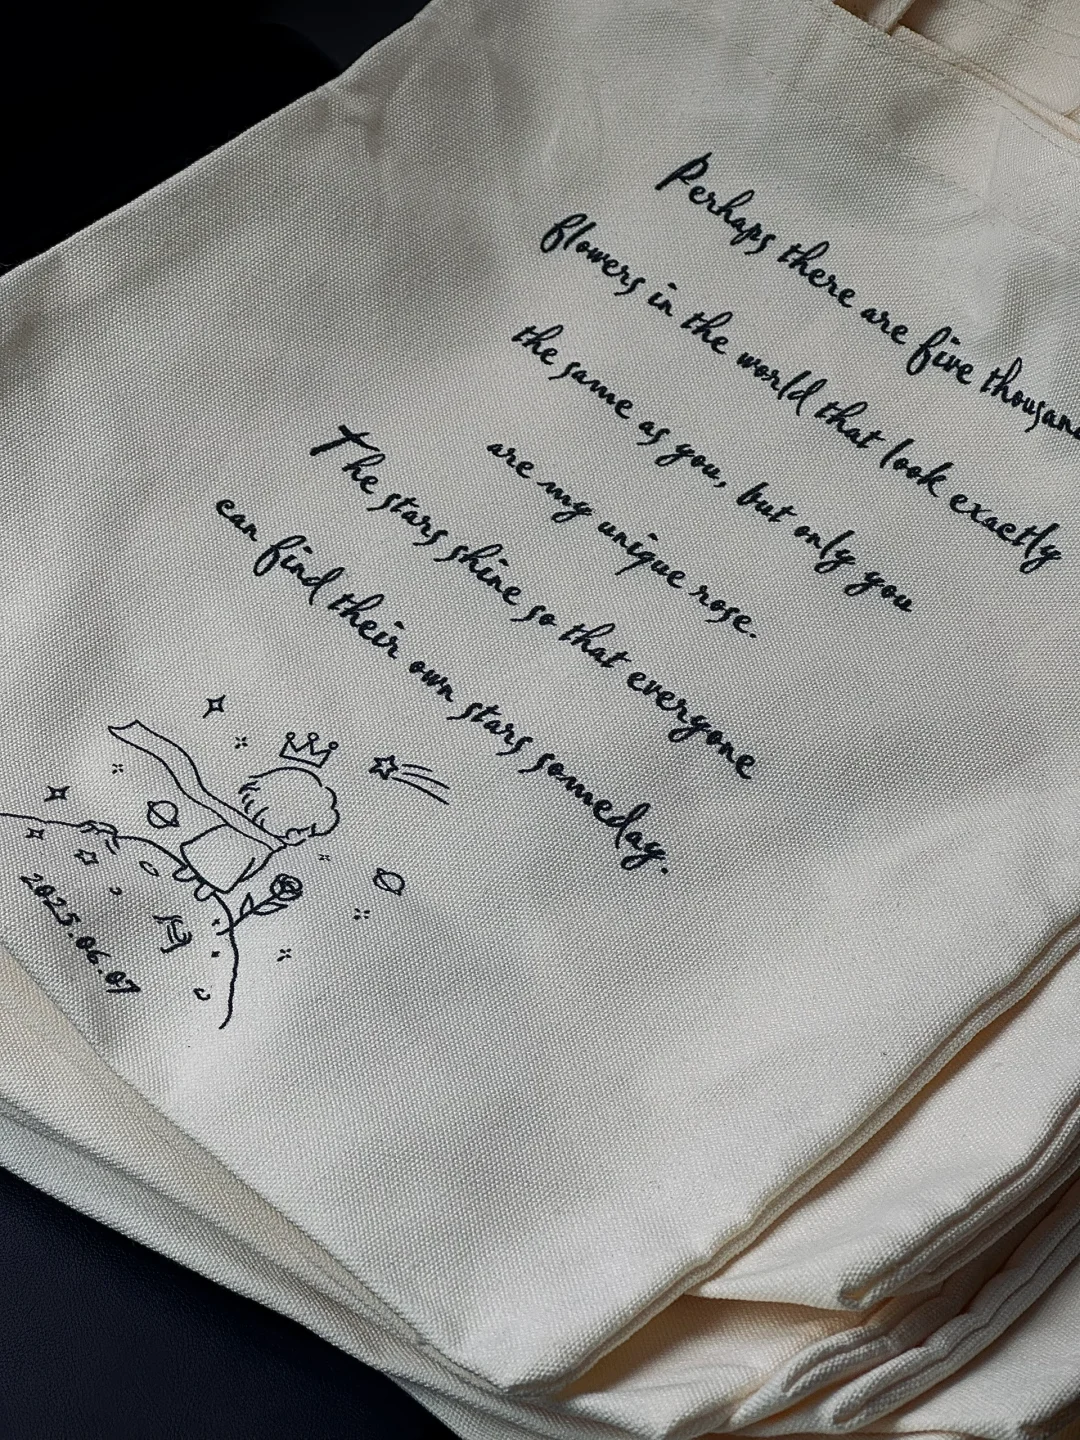 Perhaps there are five thousand
flowers in the world that look exactly
the same as you, but only you
are my unique rose.
The stars shine so that everyone
can find their own stars someday.
2025.06.07